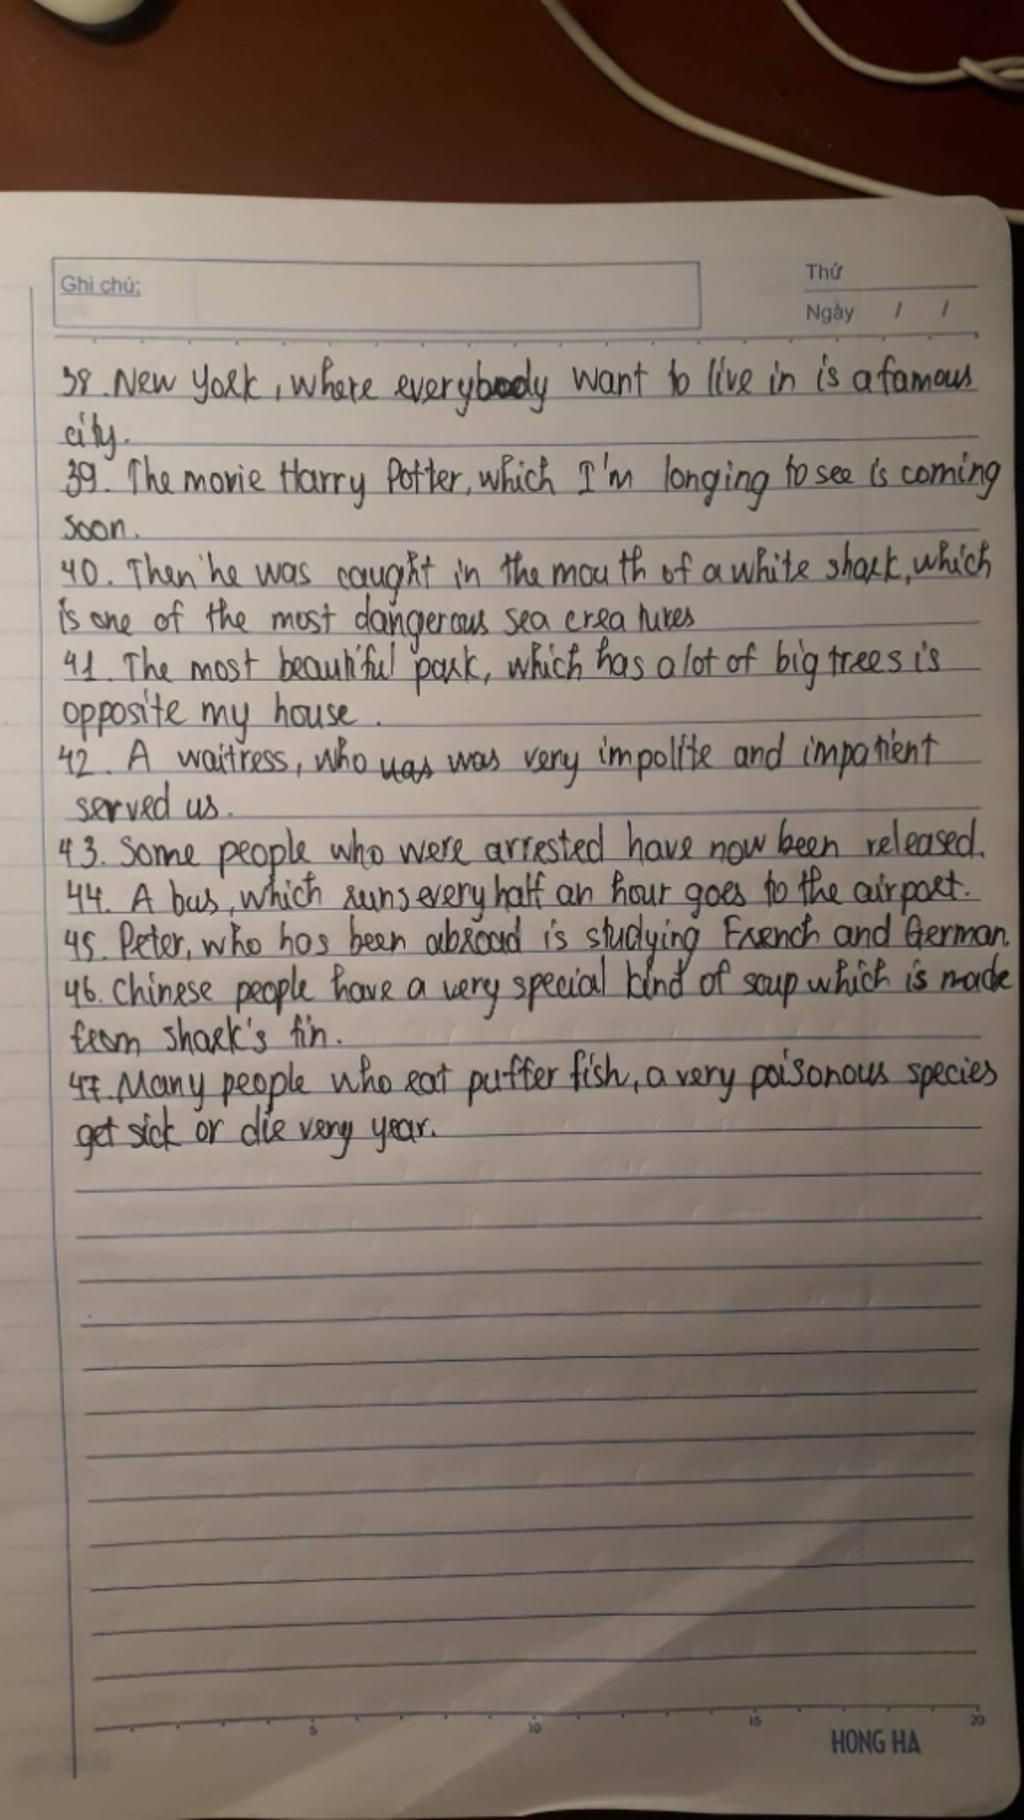 Ghi chú:
Thứ
Ngày / /
38. New York, where everybody want to live in is a famous
city.
39. The movie Harry Potter, which I'm longing to see is coming
soon.
40. Then he was caught in the mouth of a white shark, which
is one of the most dangerous sea creatures
41. The most beautiful park, which has a lot of big trees is
opposite my house.
42. A waitress, who was was very impolite and impatient
served us.
43. Some people who were arrested have now been released.
44. A bus, which runs every half an hour goes to the airport.
45. Peter, who has been abroad is studying French and German.
46. Chinese people have a very special kind of soup which is made
from shark's fin.
47. Many people who eat puffer fish, a very poisonous species
get sick or die very year.
5 10 15 20
HONG HA